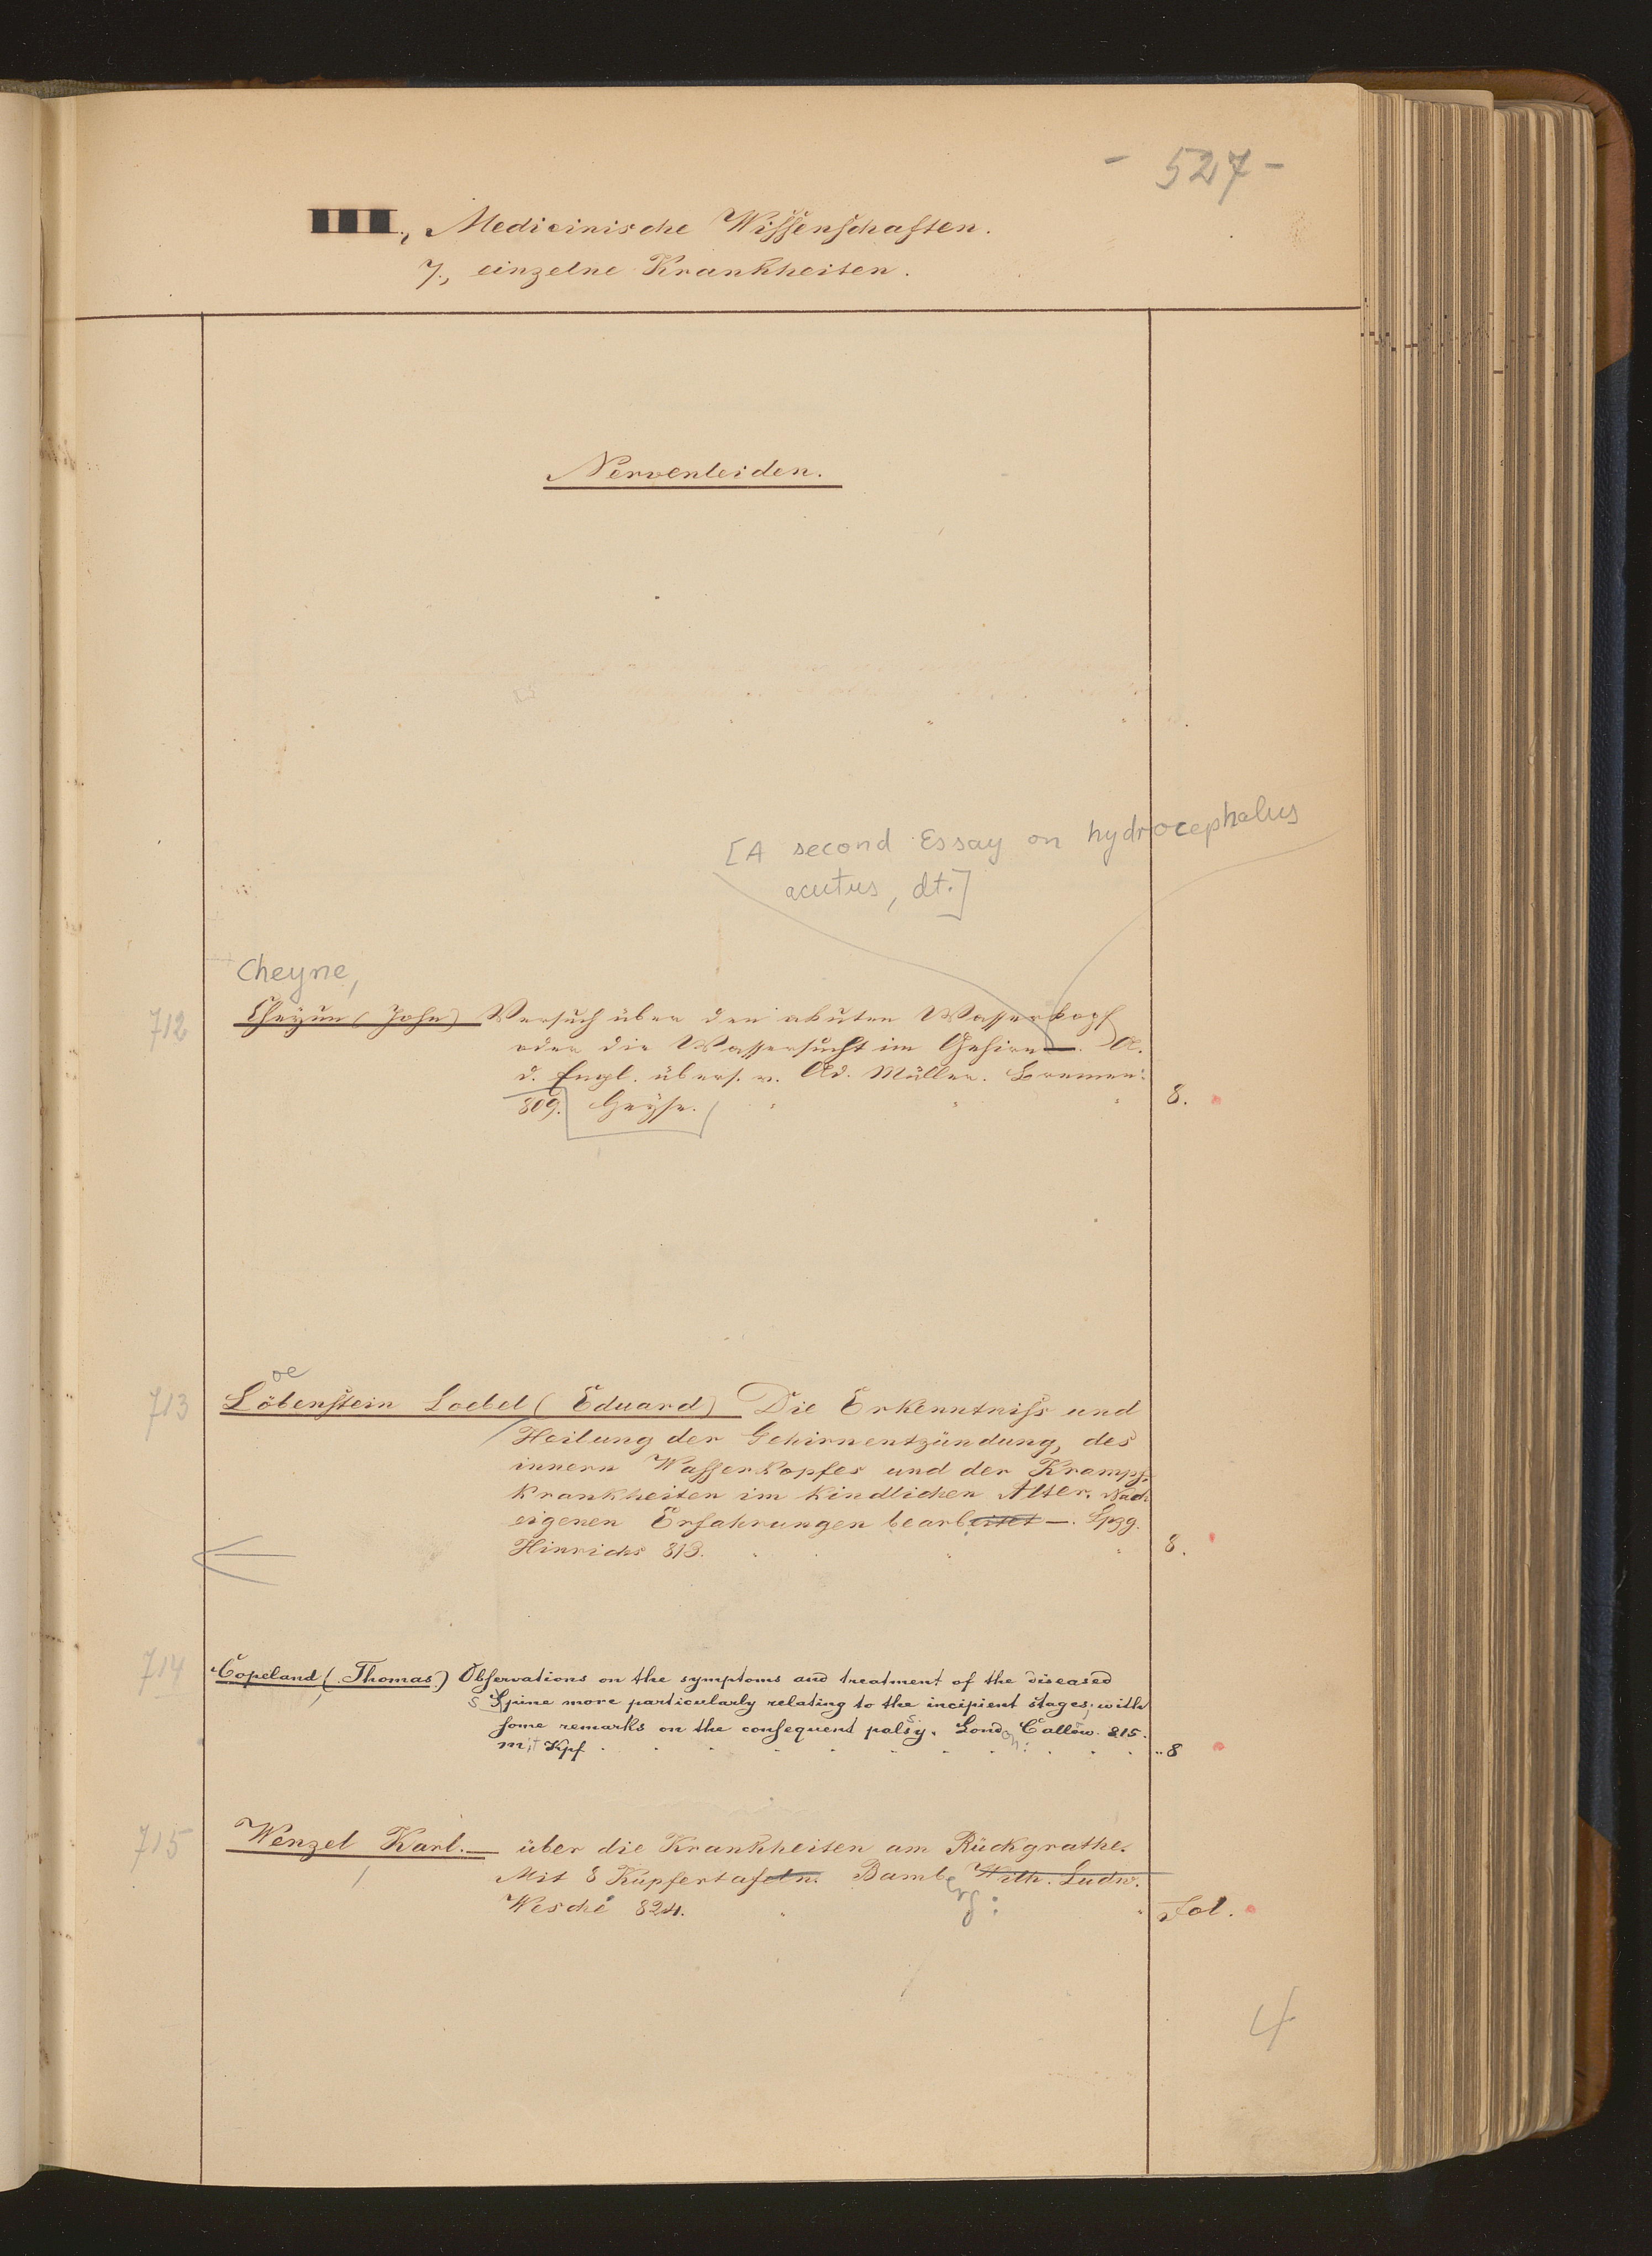 - 527 -
III., Medicinische Wissenschaften.
7., einzelne Krankheiten.
Nervenleiden.
[A second Essay on hydrocephalus
acutus, dt.]
Cheyne,
712 Cheyne (John) Versuch über den akuten Wasserkopf
oder die Wassersucht im Gehirn —. A.
d. Engl. übers. v. Ad. Müller. Bremen:
809. Heyse. 8.
oe
713 Löbenstein Loebel (Eduard) Die Erkenntniss und
Heilung der Gehirnentzündung, des
innern Wasserkopfes und der Krampf-
krankheiten im kindlichen Alter. Nach
eigenen Erfahrungen bearbeitet —. Lpzg.
Hinrichs 813. 8.
714 Copeland, (Thomas) Observations on the symptoms and treatment of the diseased
s Spine more particularly relating to the incipient stages, with
some remarks on the consequent palsy. London: Callow. 815.
mit Kpf. 8
715 Wenzel Karl. — über die Krankheiten am Rückgrathe.
Mit 8 Kupfertafeln. Bamberg: Wilh. Ludw.
Wesché 824. Fol.
4